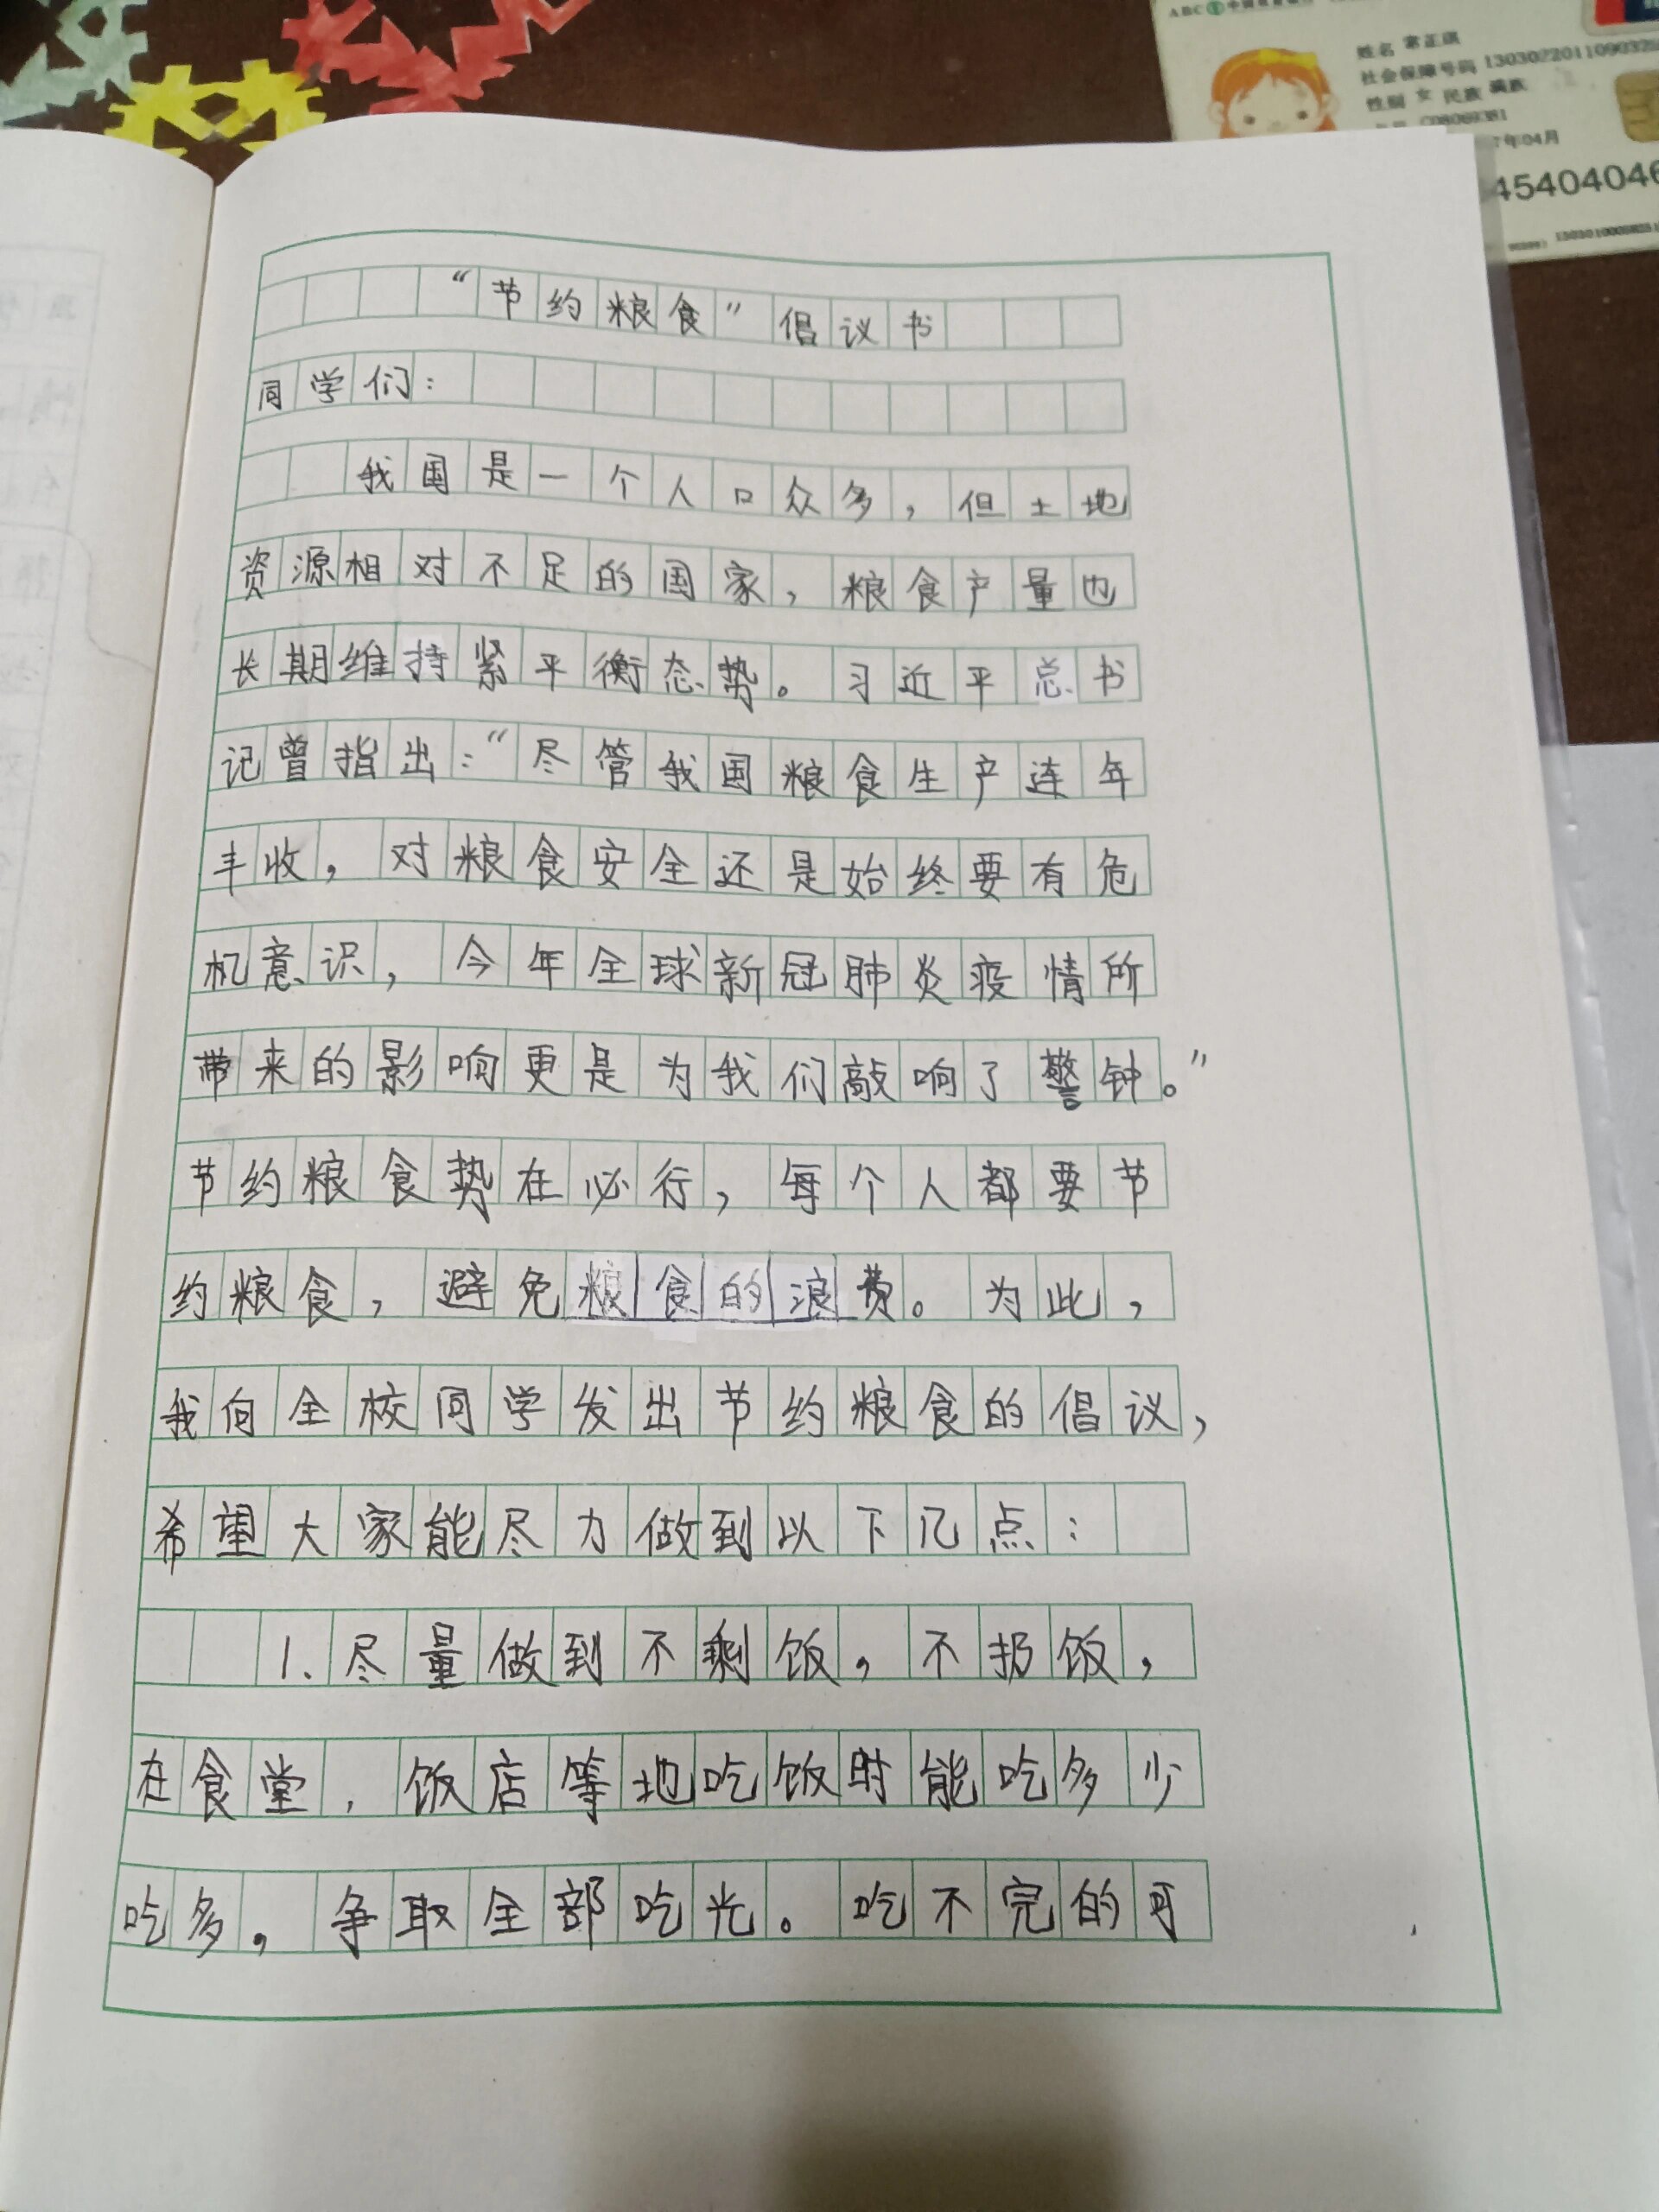 姓名 常正琪
社会保障号码
性别 女 民族 满族
年04月
“节约粮食”倡议书
同学们：
我国是一个人口众多，但土地
资源相对不足的国家，粮食产量也
长期维持紧平衡态势。习近平总书
记曾指出：“尽管我国粮食生产连年
丰收，对粮食安全还是始终要有危
机意识，今年全球新冠肺炎疫情所
带来的影响更是为我们敲响了警钟。”
节约粮食势在必行，每个人都要节
约粮食，避免粮食的浪费。为此，
我向全校同学发出节约粮食的倡议，
希望大家能尽力做到以下几点：
1、尽量做到不剩饭，不扔饭，
在食堂、饭店等地吃饭时能吃多少
吃多，争取全部吃光。吃不完的可